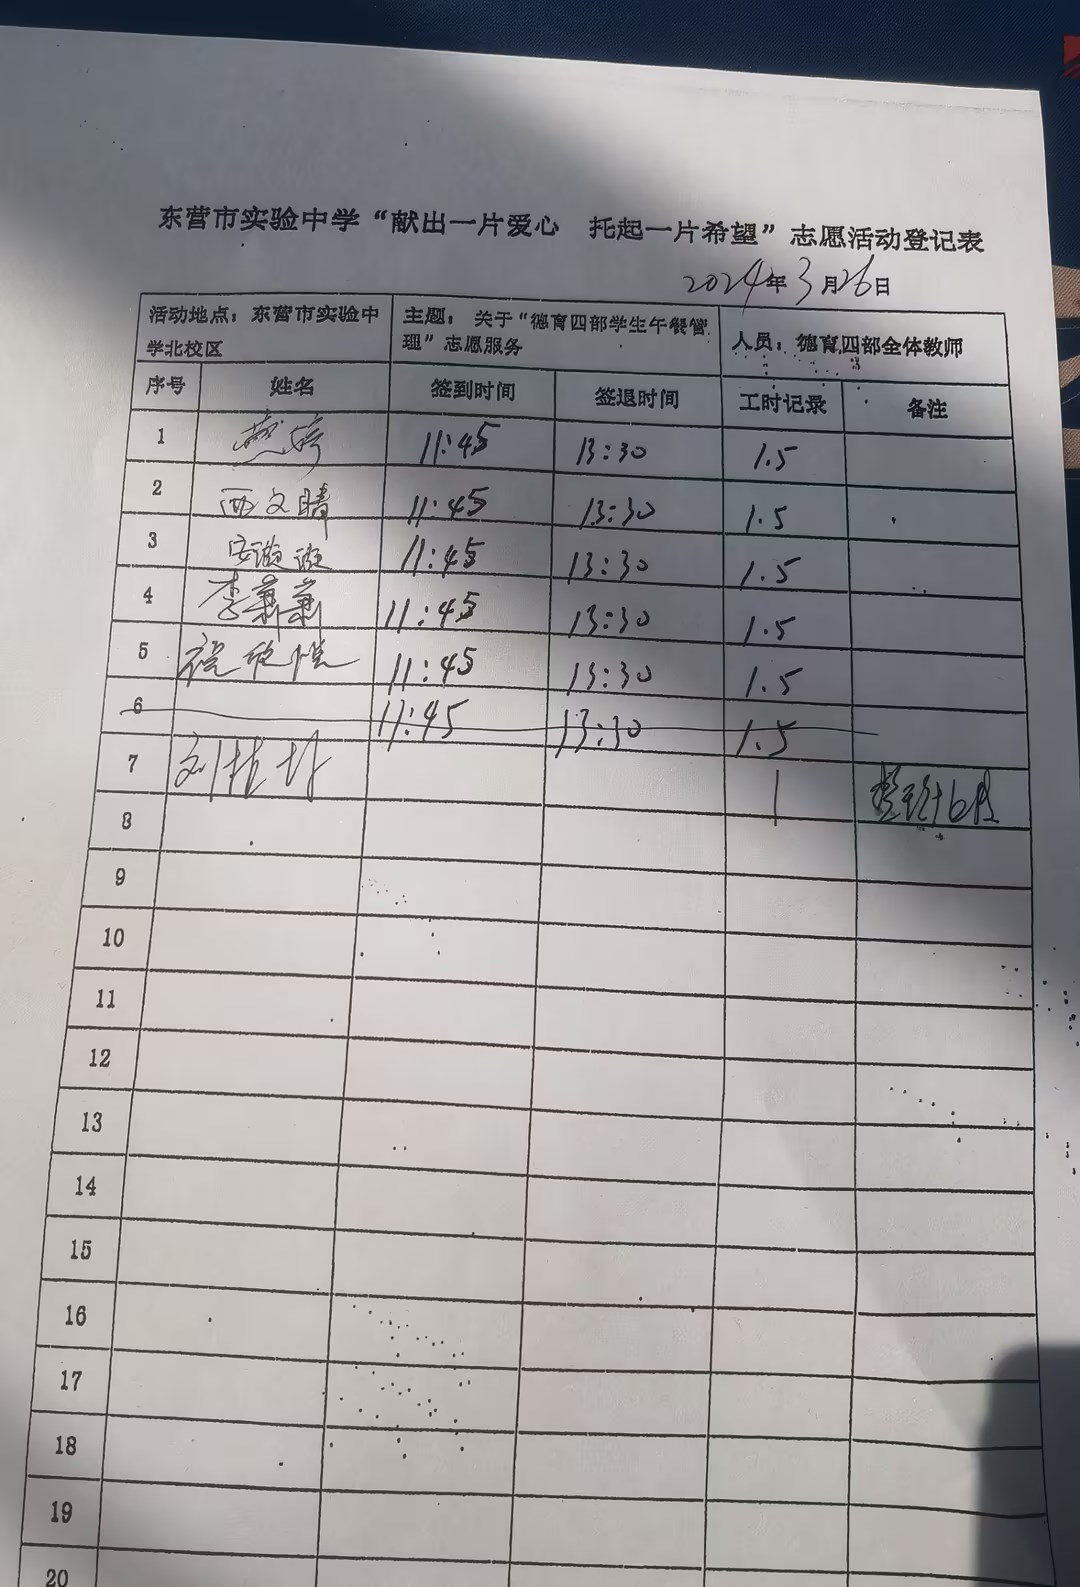 东营市实验中学“献出一片爱心 托起一片希望”志愿活动登记表
2024年3月26日
活动地点：东营市实验中学北校区 主题：关于“德育四部学生午餐管理”志愿服务 人员：德育四部全体教师
序号 姓名 签到时间 签退时间 工时记录 备注
1 11:45 13:30 1.5
2 西文晴 11:45 13:30 1.5
3 安璇璇 11:45 13:30 1.5
4 李萧萧 11:45 13:30 1.5
5 11:45 13:30 1.5
6 11:45 13:30 1.5
7 刘桂 1
8
9
10
11
12
13
14
15
16
17
18
19
20